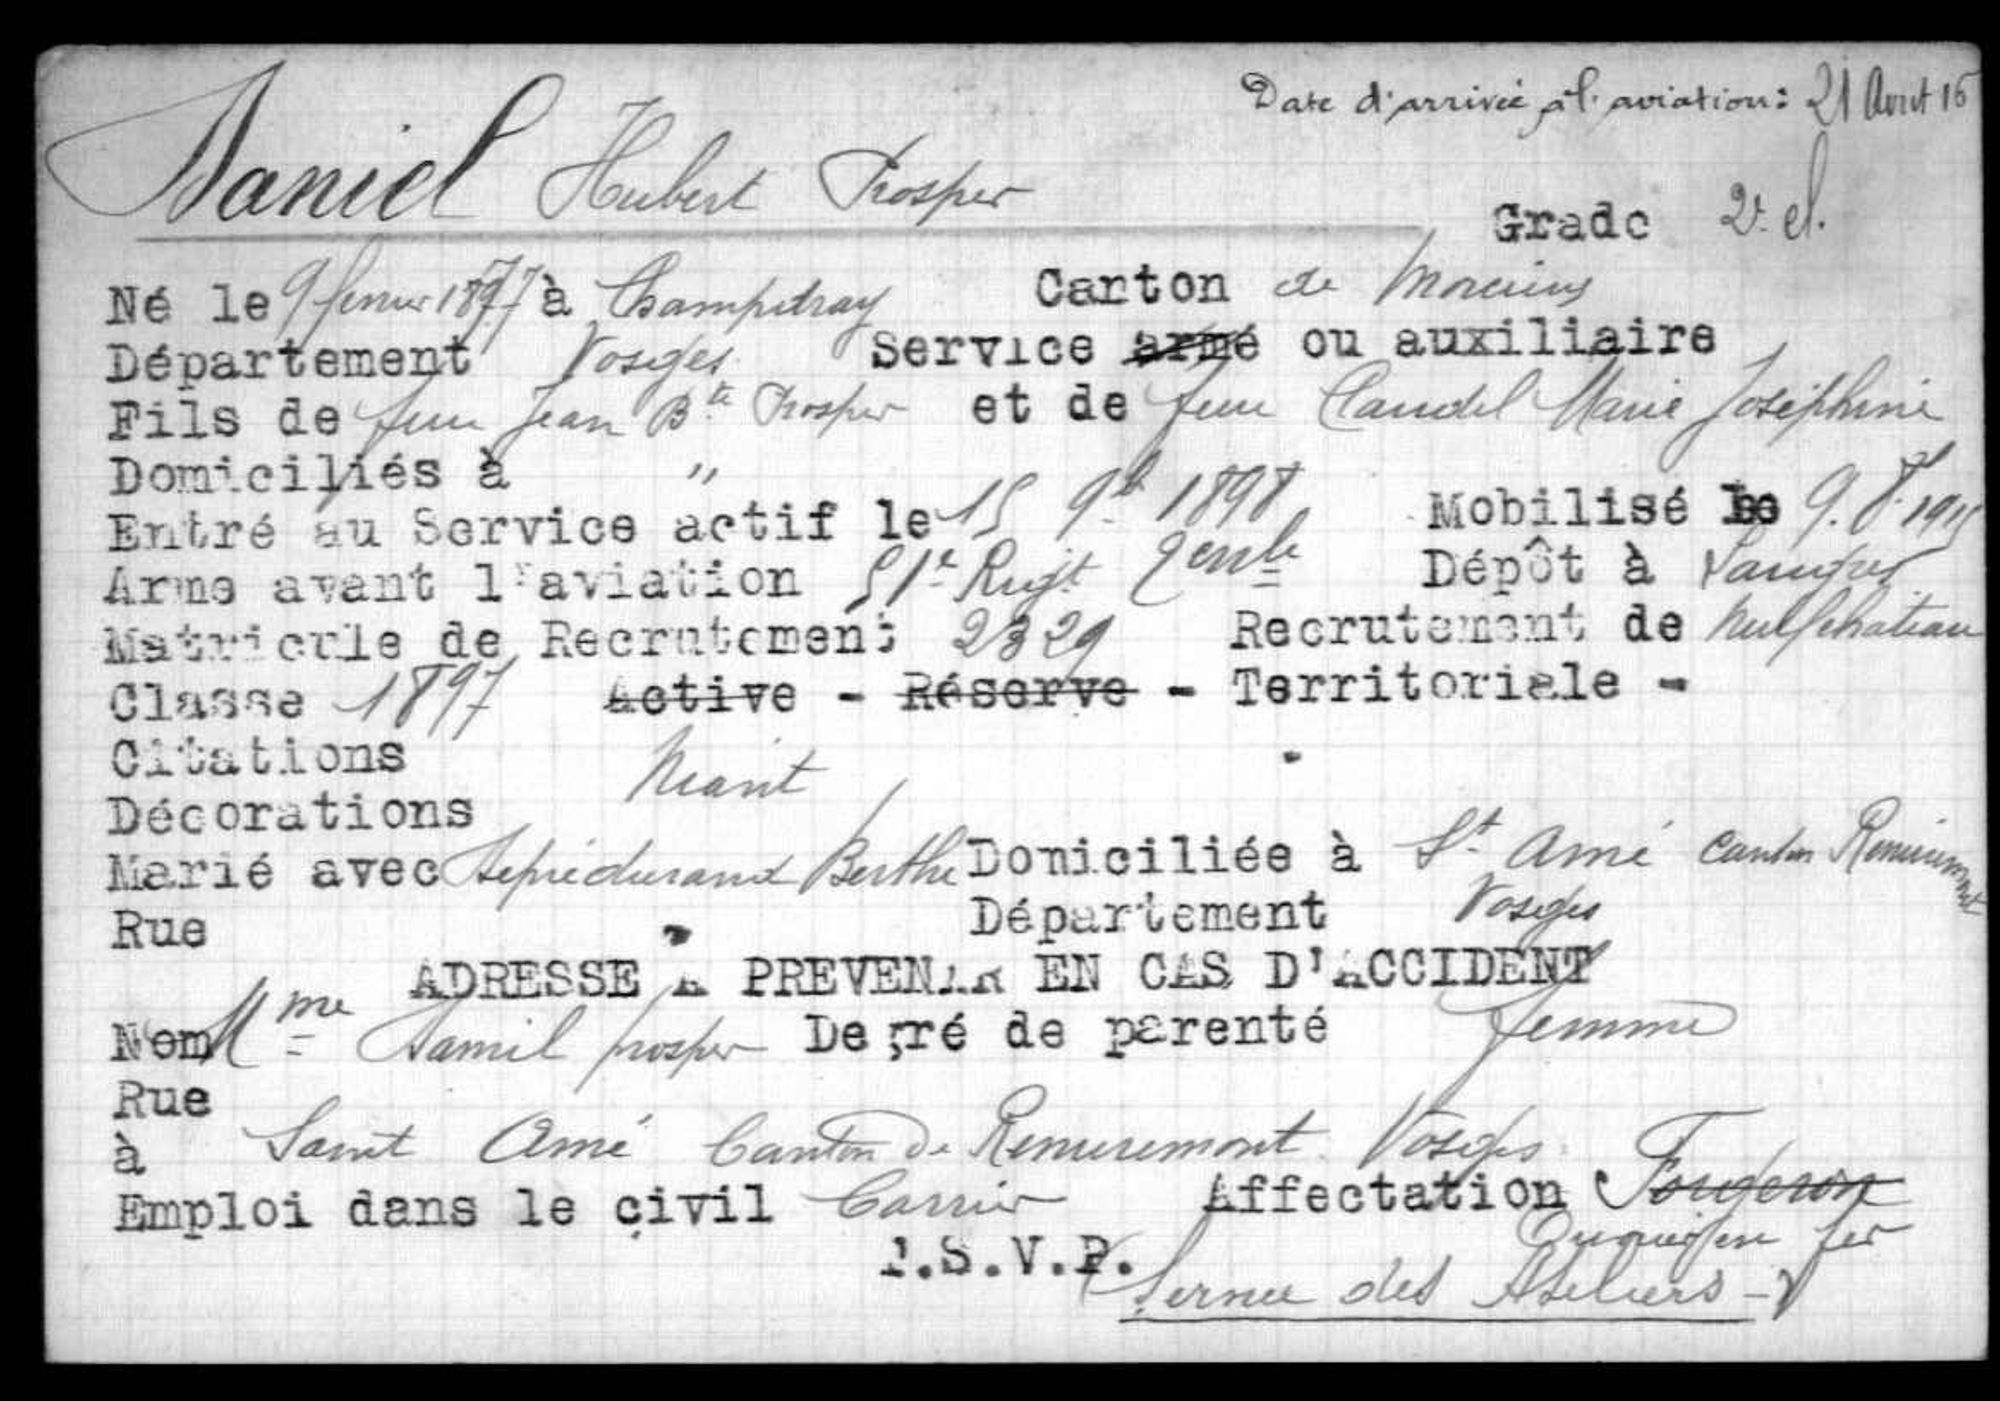 Date d'arrivée à l'aviation: 21 Avril 16
Daniel Hubert Prosper
Grade 2e cl.
Né le 9 février 1877 à Champdray Canton de
Département Vosges Service armé ou auxiliaire
Fils de feu Jean Bte Prosper et de feue Claudel Marie Joséphine
Domiciliés à "
Entré au Service actif le 15 9b 1898 Mobilisé le 9. 8. 1915
Arme avant l'aviation 51e Regt Dépôt à Langres
Matricule de Recrutement 2329 Recrutement de Neufchateau
Classe 1897 Active - Réserve - Territoriale -
Citations
Néant
Décorations
Marié avec Berthe Domiciliée à St Amé Canton Remiremont
Rue Département Vosges
ADRESSE A PREVENIR EN CAS D'ACCIDENT
Nom Mme Daniel prosper Degré de parenté femme
Rue
à Saint Amé Canton de Remiremont Vosges
Emploi dans le civil Carrier Affectation Forgeron
fer
T.S.V.P. Service des Ateliers